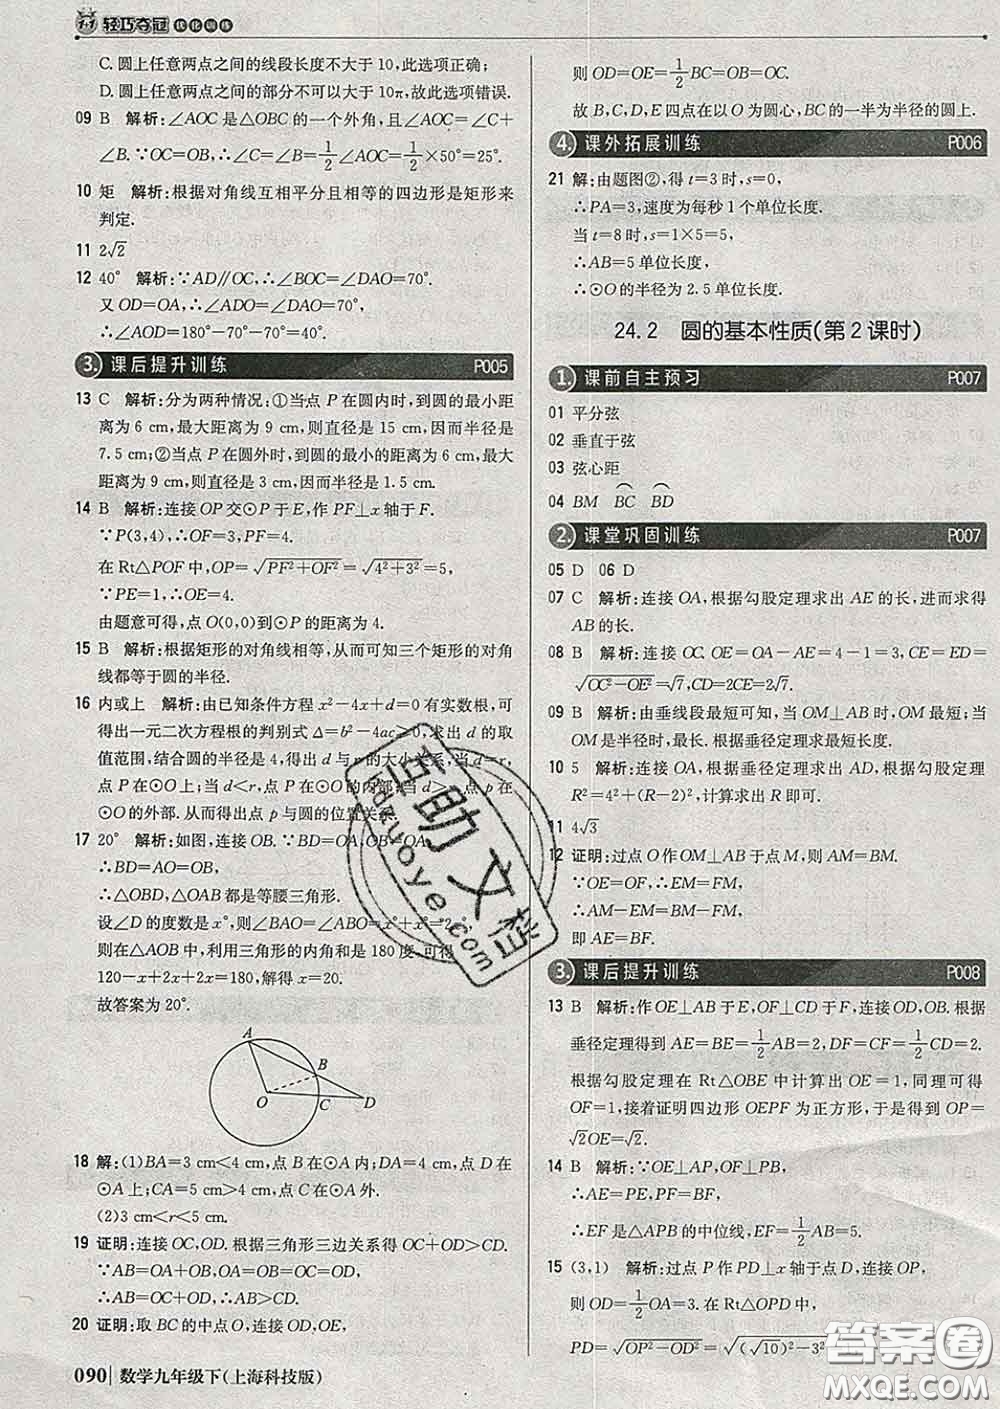 1+1 轻巧夺冠 优化训练
C. 圆上任意两点之间的线段长度不大于 10,此选项正确;
D. 圆上任意两点之间的部分不可以大于 10π,故此选项错误.
09 B 解析:∠AOC 是△OBC 的一个外角,且∠AOC=∠C+
∠B.∵OC=OB,∴∠C=∠B=1/2∠AOC=1/2×50°=25°.
10 矩 解析:根据对角线互相平分且相等的四边形是矩形来
判定.
11 2√2
12 40° 解析:∵AD∥OC,∴∠BOC=∠DAO=70°.
又 OD=OA,∴∠ADO=∠DAO=70°,
∴∠AOD=180°-70°-70°=40°.
3. 课后提升训练 P005
13 C 解析:分为两种情况:①当点 P 在圆内时,到圆的最小距
离为 6 cm,最大距离为 9 cm,则直径是 15 cm,因而半径是
7.5 cm;②当点 P 在圆外时,到圆的最小的距离为 6 cm,最大
距离为 9 cm,则直径是 3 cm,因而半径是 1.5 cm.
14 B 解析:连接 OP 交⊙P 于 E,作 PF⊥x 轴于 F.
∵P(3,4),∴OF=3,PF=4.
在 Rt△POF 中,OP=√(PF²+OF²)=√(4²+3²)=5,
∵PE=1,∴OE=4.
由题意可得,点 O(0,0)到⊙P 的距离为 4.
15 B 解析:根据矩形的对角线相等,从而可知三个矩形的对角
线都等于圆的半径.
16 内或上 解析:由已知条件方程 x²-4x+d=0 有实数根,可
得出一元二次方程根的判别式 Δ=b²-4ac≥0,求出 d 的取
值范围,结合圆的半径是 4,得出 d 与 r 的大小关系,当 d=r,
点 p 在⊙O 上;当 d<r,点 p 在⊙O 的内部,当 d> 点 p 在
⊙O 的外部.从而得出点 p 与圆的位置关系.
17 20° 解析:如图,连接 OB.∵BD=OA,OB=OA,
∴BD=AO=OB,
∴△OBD,△OAB 都是等腰三角形.
设∠D 的度数是 x°,则∠BAO=∠ABO=x°+x°=2x°,
则在△AOB 中,利用三角形的内角和是 180 度,可得
120-x+2x+2x=180,解得 x=20.
故答案为 20°.
A
B
O C D
18 解:(1)BA=3 cm<4 cm,点 B 在⊙A 内;DA=4 cm,点 D 在
⊙A 上;CA=5 cm>4 cm,点 C 在⊙A 外.
(2)3 cm<r<5 cm.
19 证明:连接 OC,OD.根据三角形三边关系得 OC+OD>CD.
∵AB=OA+OB,OA=OB=OC=OD,
∴AB=OC+OD,∴AB>CD.
20 证明:取 BC 的中点 O,连接 OD,OE,
090 数学九年级下(上海科技版)
则 OD=OE=1/2BC=OB=OC.
故 B,C,D,E 四点在以 O 为圆心,BC 的一半为半径的圆上.
4. 课外拓展训练 P006
21 解:由题图②,得 t=3 时,s=0,
∴PA=3,速度为每秒 1 个单位长度.
当 t=8 时,s=1×5=5,
∴AB=5 单位长度,
∴⊙O 的半径为 2.5 单位长度.
24.2 圆的基本性质(第 2 课时)
1. 课前自主预习 P007
01 平分弦
02 垂直于弦
03 弦心距
04 BM ⌒BC ⌒BD
2. 课堂巩固训练 P007
05 D 06 D
07 C 解析:连接 OA,根据勾股定理求出 AE 的长,进而求得
AB 的长.
08 B 解析:连接 OC. OE=OA-AE=4-1=3,CE=ED=
√(OC²-OE²)=√7,CD=2CE=2√7.
09 B 解析:由垂线段最短可知,当 OM⊥AB 时,OM 最短;当
OM 是半径时,最长.根据垂径定理求最短长度.
10 5 解析:连接 OA,根据垂径定理求出 AD,根据勾股定理
R²=4²+(R-2)²,计算求出 R 即可.
11 4√3
12 证明:过点 O 作 OM⊥AB 于点 M,则 AM=BM.
∵OE=OF,∴EM=FM,
∴AM-EM=BM-FM,
即 AE=BF.
3. 课后提升训练 P008
13 B 解析:作 OE⊥AB 于 E,OF⊥CD 于 F,连接 OD,OB.根据
垂径定理得到 AE=BE=1/2AB=2,DF=CF=1/2CD=2.
根据勾股定理在 Rt△OBE 中计算出 OE=1,同理可得
OF=1,接着证明四边形 OEPF 为正方形,于是得到 OP=
√2OE=√2.
14 B 解析:∵OE⊥AP,OF⊥PB,
∴AE=PE,PF=BF,
∴EF 是△APB 的中位线,EF=1/2AB=5.
15 (3,1) 解析:过点 P 作 PD⊥x 轴于点 D,连接 OP,
则 OD=1/2OA=3.在 Rt△OPD 中,
PD=√(OP²-OD²)=√((√10)²-3²)=
答案圈
MXQE.COM